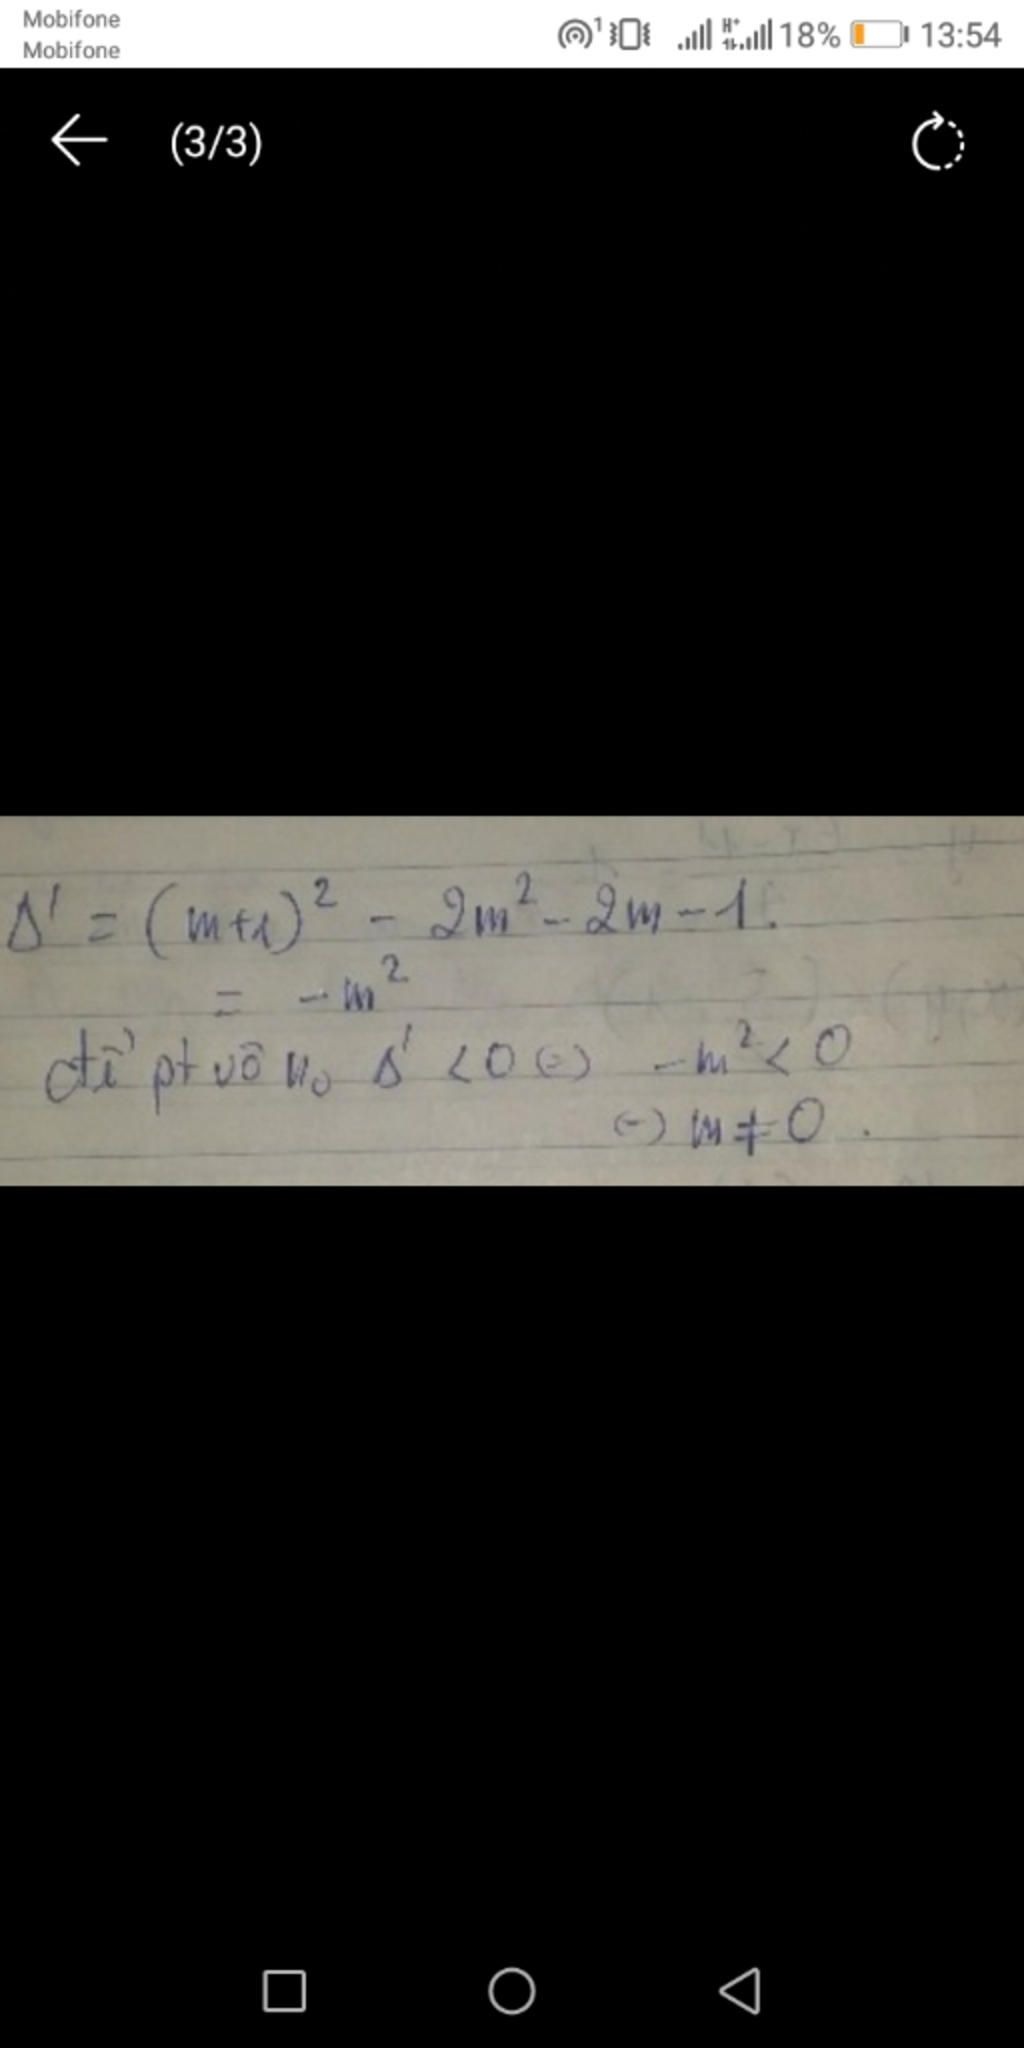 Mobifone
Mobifone
1 H+ 18% 13:54
(3/3)
Δ' = (m+1)² - 2m² - 2m - 1.
= -m²
để pt vô no Δ' < 0 (=) -m² < 0
(=) m ≠ 0.